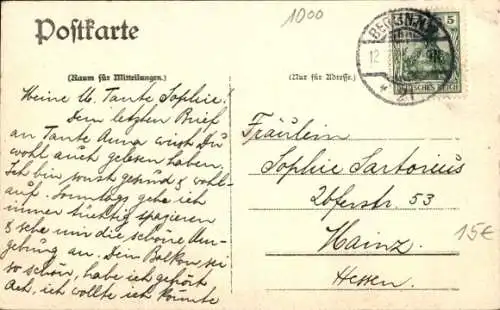 1000
Postkarte
(Raum für Mitteilungen.)
(Nur für Adresse.)
BERLIN, N.W.
12
* 21
5
DEUTSCHES REICH
Meine l. Tante Sophie!
Dem letzten Brief
an Tante Anna wirst Du
wohl auch gelesen haben.
Ich bin sonst gesund & wohl-
auf. Sonntags gehe ich
immer tüchtig spazieren
& sehe mir die schöne Um-
gebung an. Dein Balkon sei
so schön, habe ich gehört
Ach, ich wollte ich könnte
Fräulein
Sophie Sartorius
53
Mainz.
Hessen.
15€